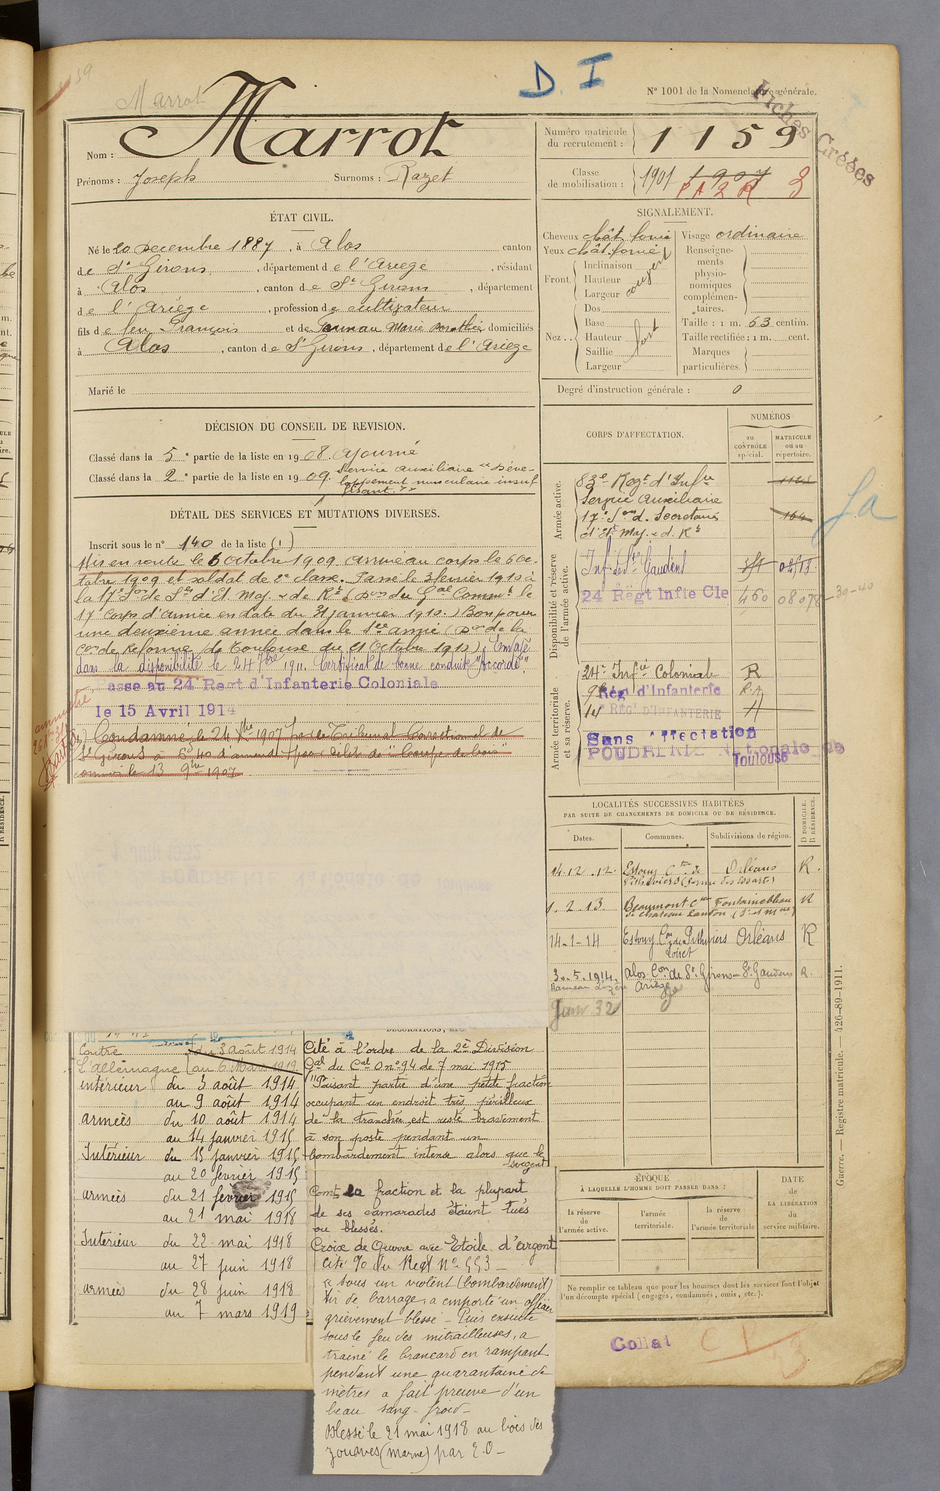 Marrot
D. I
N° 1001 de la Nomenclature générale.
Fiches Créées
Nom : Marrot
Prénoms : Joseph Surnoms : Razet
Numéro matricule du recrutement : 1159
Classe de mobilisation : 1901 1907
ÉTAT CIVIL.
Né le 20 Décembre 1887, à Alos canton
de St Girons, département de l'Ariège, résidant
à Alos, canton de St Girons, département
de l'Ariège, profession de cultivateur
fils de feu François et de Marie domiciliés
à Alos, canton de St Girons, département de l'Ariège
Marié le
SIGNALEMENT.
Cheveux chât. foncé
Yeux chât. foncé
Front. Inclinaison Hauteur Largeur moyent
Nez. Dos Base Hauteur Saillie Largeur fort
Visage ordinaire
Renseignements physionomiques complémentaires.
Taille : 1 m. 63 centim.
Taille rectifiée : 1 m. cent.
Marques particulières.
Degré d'instruction générale : 0
DÉCISION DU CONSEIL DE REVISION.
Classé dans la 5e partie de la liste en 1908. Ajourné
Classé dans la 2e partie de la liste en 1909. Service auxiliaire "Développement musculaire insuffisant."
DÉTAIL DES SERVICES ET MUTATIONS DIVERSES.
Inscrit sous le n° 140 de la liste (1)
Mis en route le 6 octobre 1909. Arrivé au corps le 6 oc-
tobre 1909 et soldat de 2e classe. Passé le 3 février 1910 à
la 17e Son de Sres d'Et Maj. & de Rt (Don du Gal Commt le
17e Corps d'Armée en date du 31 janvier 1910.) Bon pour
une deuxième année dans le Sce armé (Don de la
Con de Réforme de Toulouse du 21 Octobre 1910). Envoyé
dans la disponibilité le 24 7bre 1911. Certificat de bonne conduite "Accordé".
Passé au 24e Regt d'Infanterie Coloniale
le 15 Avril 1914
Condamné le 24 Xbre 1907 par le Tribunal Correctionnel de
St Girons à d'amende pour délit de "Coupe de bois"
commis le 13 9bre 1907.
CORPS D'AFFECTATION.
NUMÉROS
au CONTRÔLE spécial.
MATRICULE ou au répertoire.
Armée active.
83e Regt d'Infrie
Service Auxiliaire
17e Son de Secrétaires
d'Et Maj. & d. Rt
164
Disponibilité et réserve de l'armée active.
Inf. de St Gaudens
24 Régt Infie Cle 460
Armée territoriale et sa réserve.
24e Infie Coloniale R
Rég d'Infanterie
14 RÉG D'INFANTERIE
Sans Affectation
POUDRERIE Nationale de
Toulouse
LOCALITÉS SUCCESSIVES HABITÉES
PAR SUITE DE CHANGEMENTS DE DOMICILE OU DE RÉSIDENCE.
Dates. Communes. Subdivisions de région. D DOMICILE. R RÉSIDENCE.
14.12.12. Estouy Con de Orléans R.
Pithiviers
1.2.13 Beaumont Con Fontainebleau R
de Chateau Landon
14-1-14 Estouy Con de Pithiviers Orléans R
Loiret
30.5.1914 Alos Con de St Girons St Gaudens R.
Ariège
Janv 32
DÉCORATIONS, ETC
Contre du 3 août 1914
L'Allemagne au 6 Mars 1919
intérieur du 3 août 1914
au 9 août 1914
armées du 10 août 1914
au 14 janvier 1915
Intérieur du 15 janvier 1915
au 20 février 1915
armées du 21 février 1915
au 21 mai 1918
Intérieur du 22 mai 1918
au 27 juin 1918
armées du 28 juin 1918
au 7 mars 1919
Cité à l'ordre de la 2e Division
Gal du Cal O n° 94 de 7 mai 1915
"Faisant partie d'une petite fraction
occupant un endroit très périlleux
de la tranchée est resté bravement
à son poste pendant un
bombardement intense alors que le
sergent
Comt la fraction et la plupart
de ses camarades étaient tués
ou blessés.
Croix de Guerre avec Etoile d'argent
Cité O du Regt N° 553
a sous un violent (bombardement)
tir de barrage, a emporté un officier
grièvement blessé - Puis ensuite
sous le feu des mitrailleuses, a
trainé le brancard en rampant
pendant une quarantaine de
mètres a fait preuve d'un
beau sang-froid -
Blessé le 21 mai 1918 au bois des
Zouaves (Marne) par E.O -
ÉPOQUE
À LAQUELLE L'HOMME DOIT PASSER DANS :
la réserve de l'armée active.
l'armée territoriale.
la réserve de l'armée territoriale
DATE DE LA LIBÉRATION du service militaire.
Ne remplir ce tableau que pour les hommes dont les services font l'objet
d'un décompte spécial (engagés, condamnés, omis, etc.).
Guerre. — Registre matricule. — 426-89-1911.